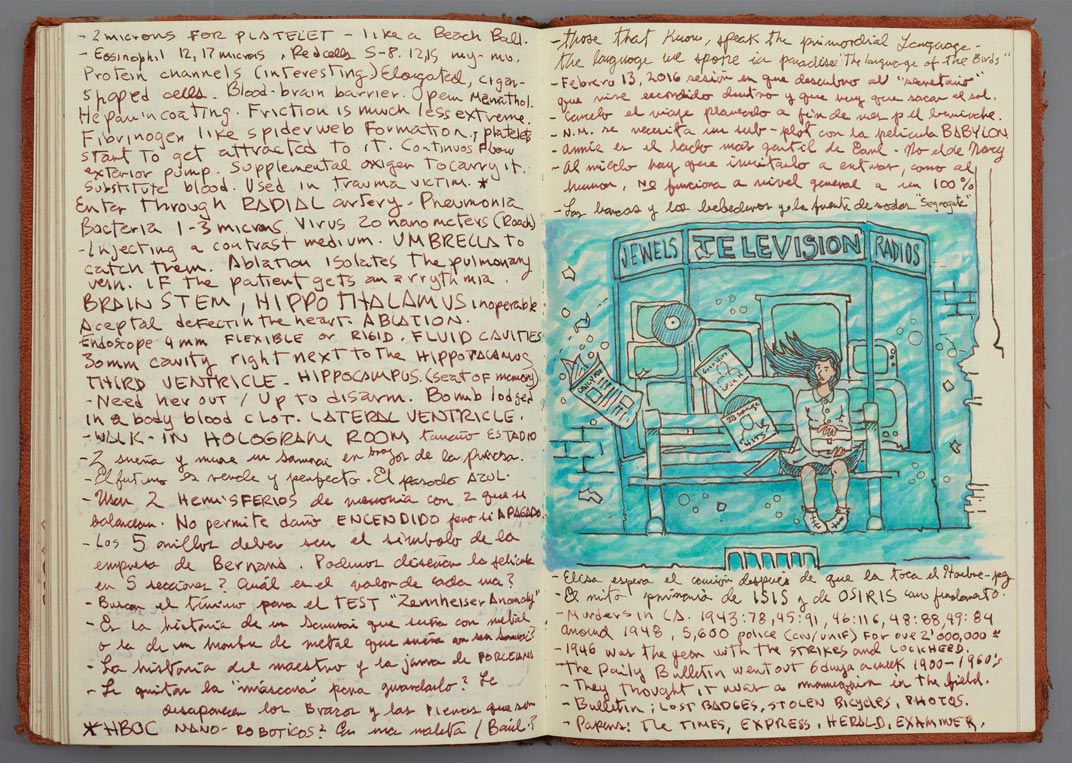 - 2 microns FOR PLATELET - like a Beach Ball.
- Eosinophil 12, 17 microns, Red cells 5-8.
Protein channels (interesting) Elongated, cigar-
shaped cells. Blood-brain barrier. Open
Heparin coating. Friction is much less extreme.
Fibrinogen like spiderweb formation, platelets
start to get attracted to it. Continuos Flow
exterior pump. Supplemental oxigen to carry it.
Substitute blood. Used in trauma victim. *
Enter through RADIAL artery - Pneumonia
Bacteria 1-3 microns Virus 20 nanometers (Roads)
- Injecting a contrast medium. UMBRELLA to
catch them. Ablation isolates the pulmonary
vein. IF the patient gets an arrythmia.
BRAIN STEM, HIPPOTHALAMUS inoperable
Aceptal defect in the heart. ABLATION.
Endoscope 4 mm FLEXIBLE or RIGID. FLUID CAVITIES
30mm cavity right next to the HIPPOTACAMOS
THIRD VENTRICLE - HIPPOCAMPUS. (seat of memory)
- Need her out / Up to disarm. Bomb lodged
in a body blood clot. LATERAL VENTRICLE.
- WALK-IN HOLOGRAM ROOM tamaño ESTADIO
- 2 sueña y muere un samurai en brazos de la princesa.
- El futuro es verde y perfecto. El pasado AZUL.
- Usan 2 HEMISFERIOS de memoria con 2 que se
balancean. No permite daño ENCENDIDO pero si APAGADO
- Los 5 anillos deben ser el simbolo de la
empresa de Bernard. Podemos diseñar la pelicula
en 5 secciones? Cuál es el valor de cada una?
- Buscan el termino para el TEST "Zennheiser Anomaly"
- Es la historia de un samurai que sueña con metal
o la de un hombre de metal que sueña en ser samurai?
- La historia del maestro y la jarra de PORCELANA
- Le quitan la "máscara" para guardarlo? Le
desaparecen los Brazos y las Piernas que son
* HBOC NANO-ROBOTICOS? En una maleta / Baúl?
- those that know, speak the primordial language -
the language we spoke in paradise: "The language of the Birds"
- Febrero 13, 2016 sesión en que descubro al "secretario"
que vive escondido dentro y que hay que sacar al sol.
- Cancelo el viaje planeado a fin de mes
- N.M. se necesita un sub-plot con la pelicula BABYLON
- Annie es el lado mas gentil de Earl - No el de Macy
- Al miedo hay que invitarlo a entrar, como al
humor, NO funciona a nivel general a un 100%
- Las bancas y los bebederos y la fuente de sodas "segregate"
JEWELS TELEVISION RADIOS
- Elisa espera el camión después de que la toca el Hombre-pez
- El mito primario de ISIS y de OSIRIS como fundamento.
- Murders in LA. 1943:78, 45:91, 46:116, 48:88, 49:84
around 1948, 5,600 police (civ/unif) for ove 2'000,000
- 1946 was the year with the STRIKES and LOCKHEED.
- The Daily Bulletin went out 6 days a week 1900-1960's
- They thought it was a mannequin in the field.
- Bulletin; LOST BADGES, STOLEN Bicycles, PHOTOS.
- Papers: The TIMES, EXPRESS, HERALD, EXAMINER,